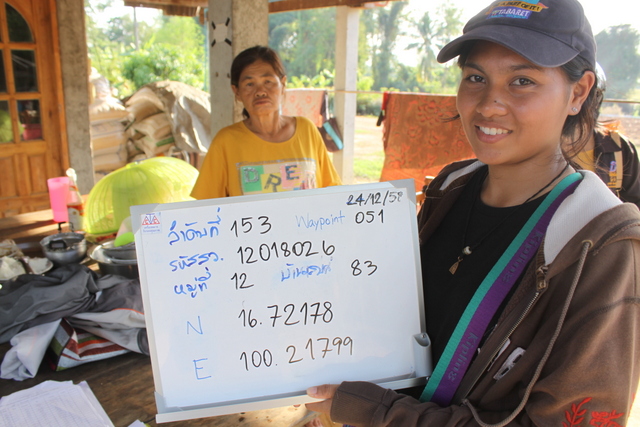 24/12/58
ลำดับที่ 153 Waypoint 051
รหัสรว. 12018026
หมู่ที่ 12 บ้านเลขที่ 83
N 16.72178
E 100.21799